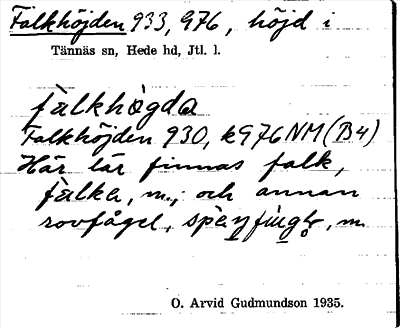 Falkhöjden 933, 976, höjd i
Tännäs sn, Hede hd, Jtl. l.
fàlkhøgda
Falkhöjden 930, k976NM (B4)
Här lär finnas falk,
fàlke, m., och annan
rovfågel, m.
O. Arvid Gudmundson 1935.